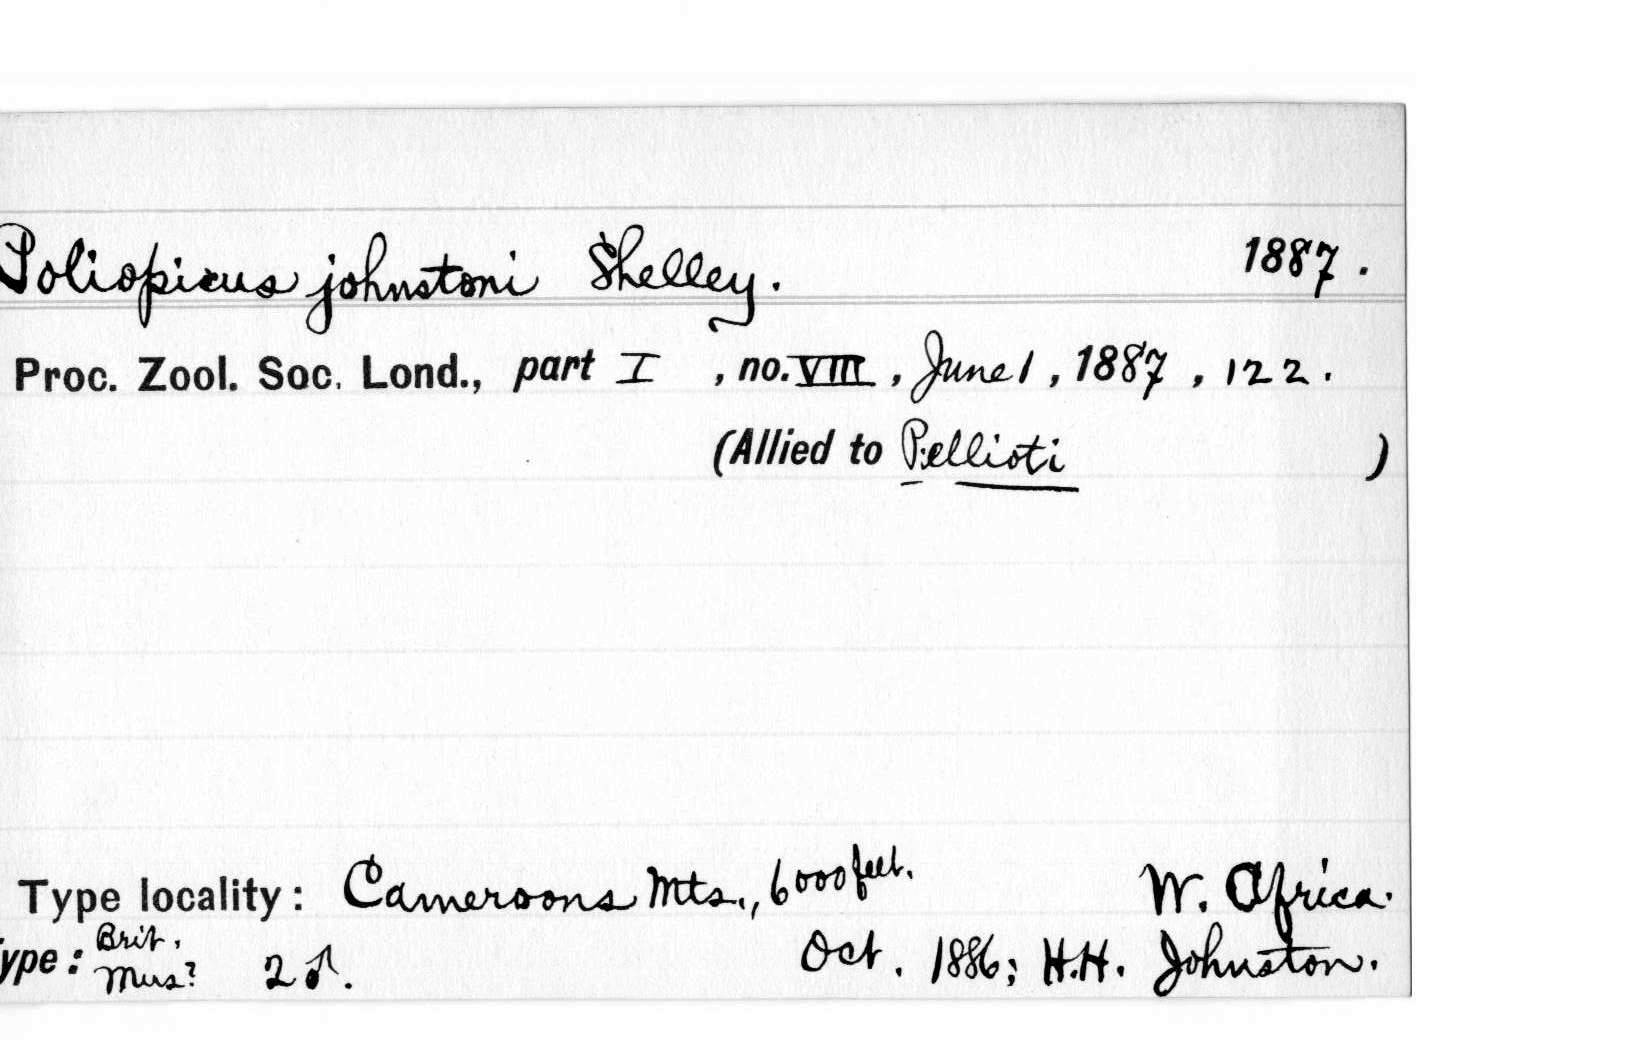 Poliopicus johnstoni Shelley. 1887.
Proc. Zool. Soc. Lond., part I , no. VIII , June 1 , 1887 , 122.
(Allied to P. ellioti )
Type locality: Cameroons Mts., 6000 feet. W. Africa.
ype: Brit. Mus? 2 ♂. Oct. 1886; H.H. Johnston.